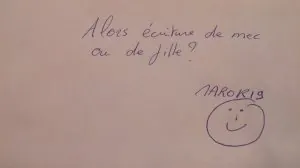 Alors écriture de mec
ou de fille ?
MAROK19